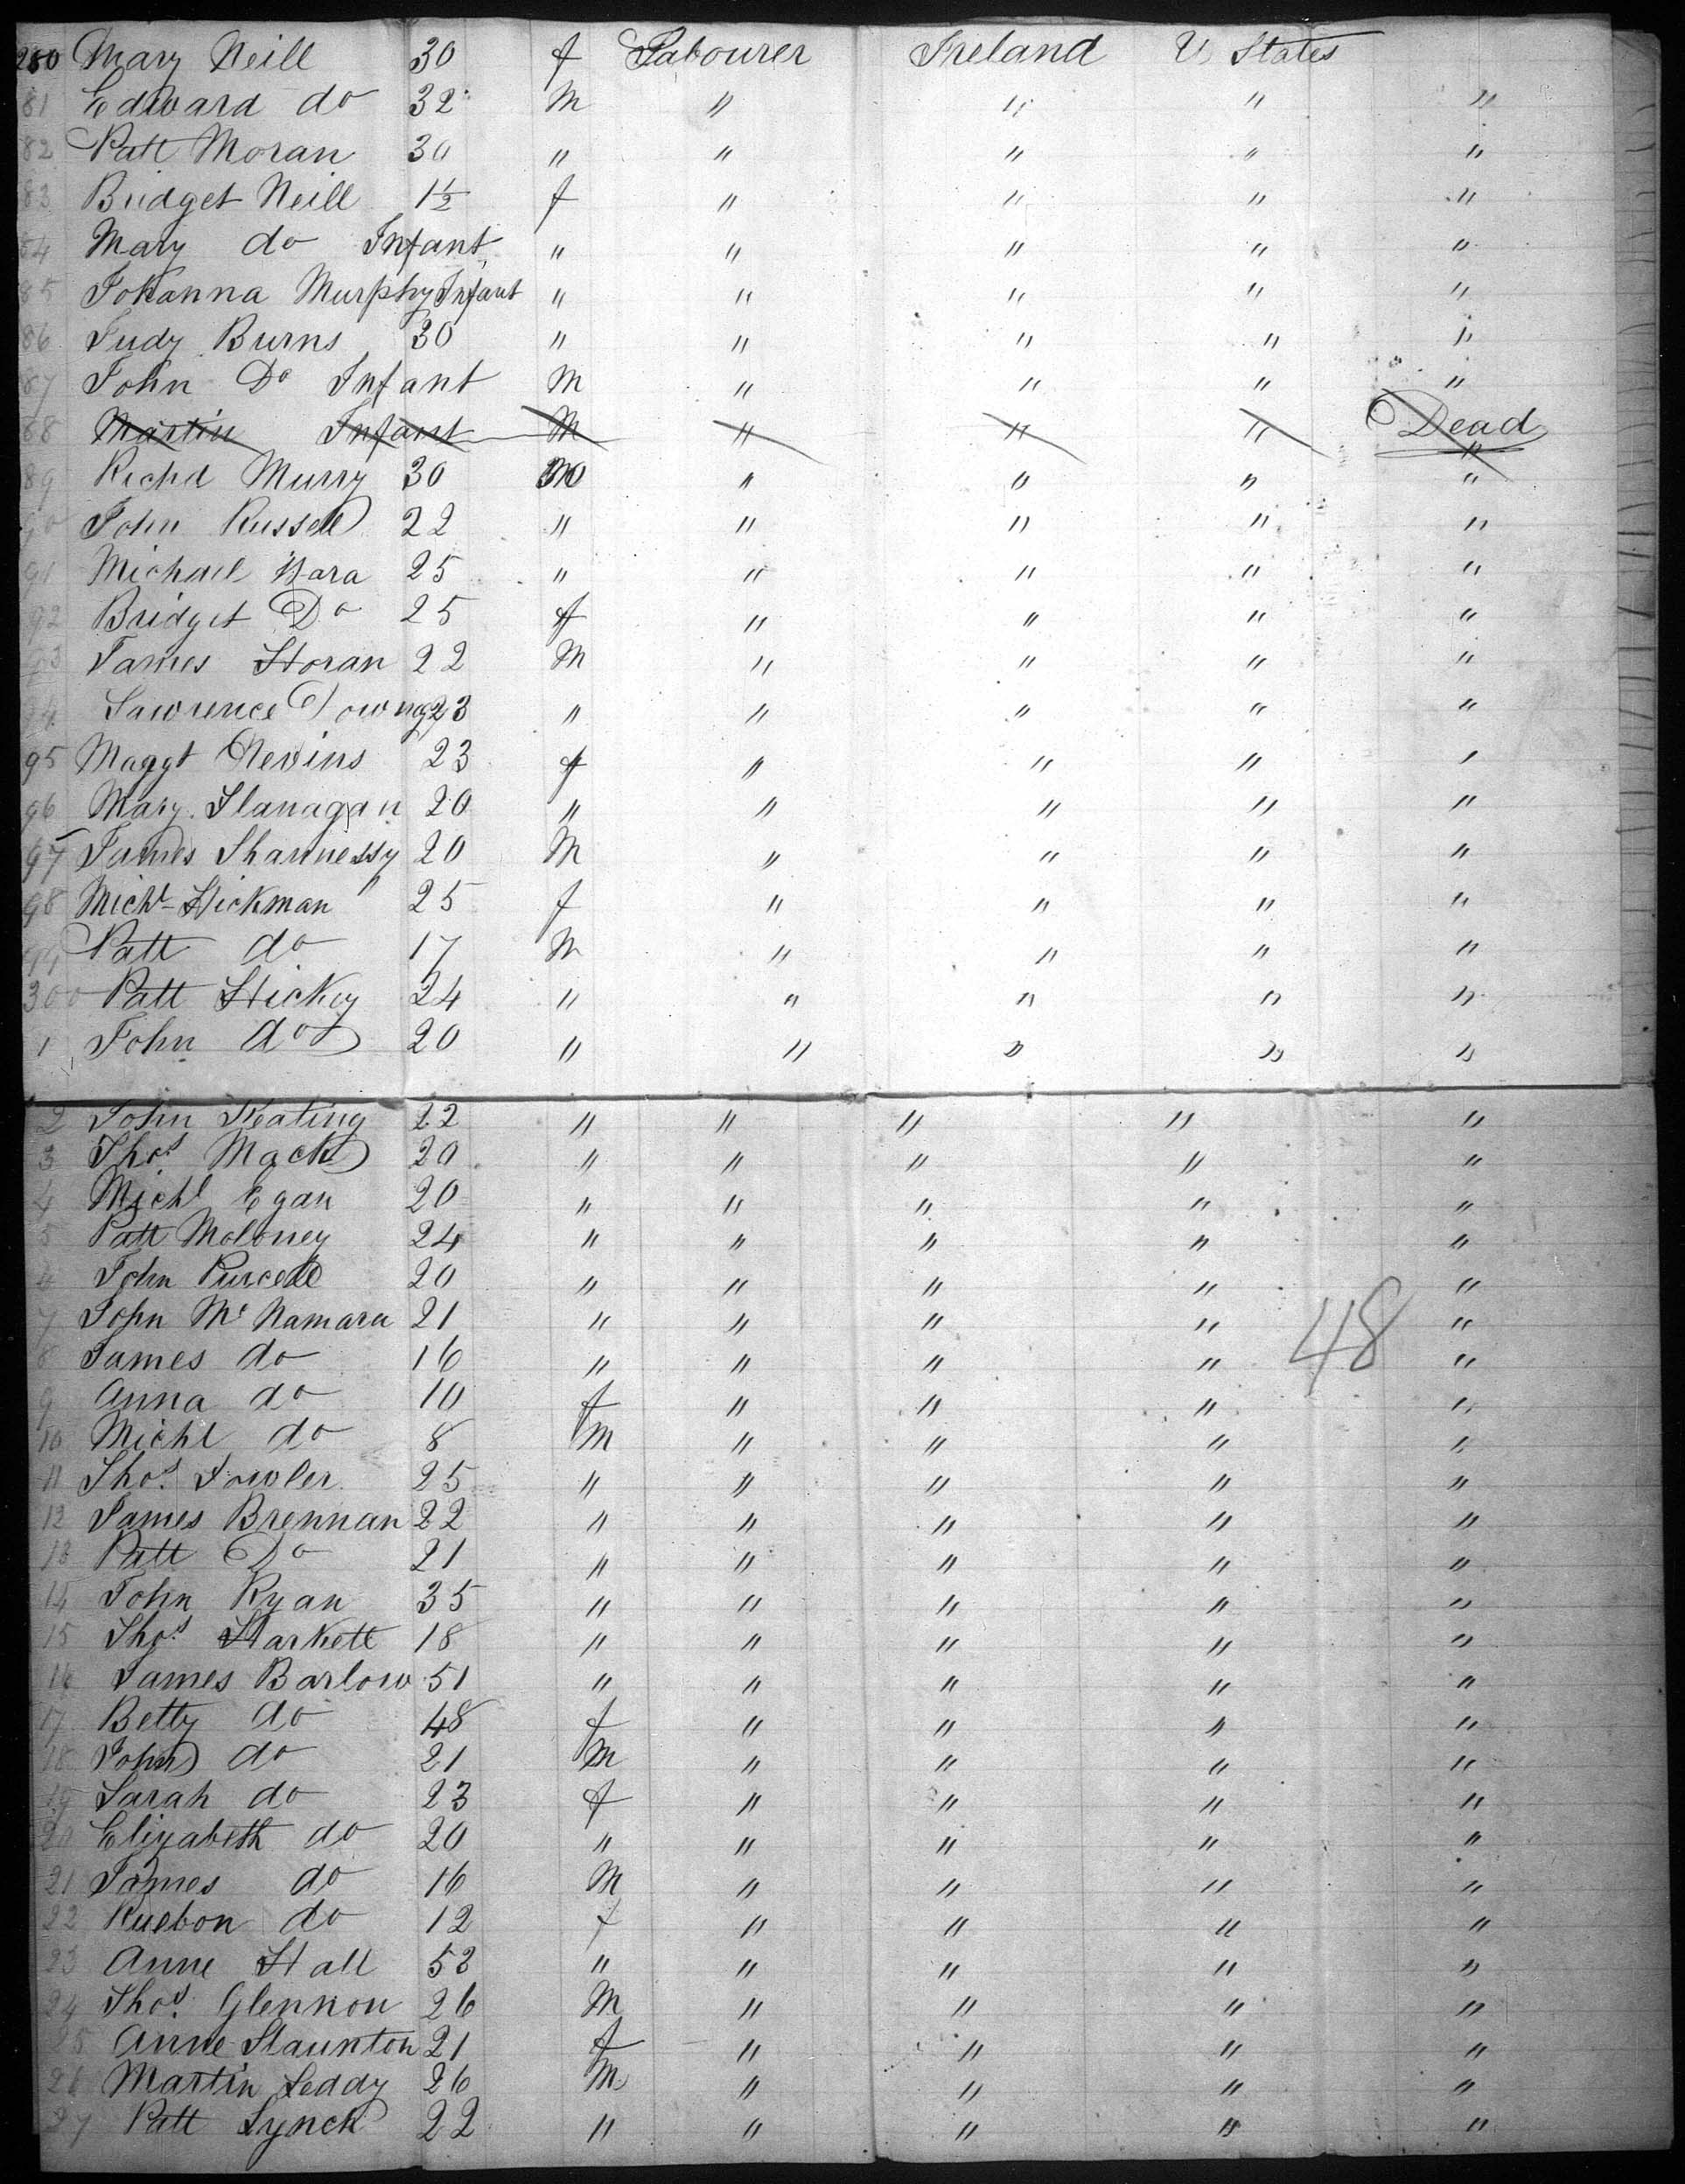 280 Mary Neill 30 f Labourer Ireland U. States
81 Edward do 32 M " " " "
82 Patt Moran 30 " " " " "
83 Bridget Neill 1½ f " " " "
84 Mary do Infant " " " " "
85 Johanna Murphy Infant " " " " "
86 Judy Burns 30 " " " " "
87 John Do Infant M " " " "
88 Martin Infant M " " " Dead "
89 Richd Murry 30 M " " " "
90 John Russell 22 " " " " "
91 Michael Hara 25 " " " " "
92 Bridget Do 25 f " " " "
93 James Horan 22 M " " " "
94 Lawrence 23 " " " " "
95 Maggt Nevins 23 f " " " "
96 Mary Flanagan 20 " " " " "
97 James Shannessy 20 M " " " "
98 Michl Hickman 25 f " " " "
99 Patt do 17 M " " " "
300 Patt Hickey 24 " " " " "
1 John do 20 " " " " "
2 John Keating 22 " " " " "
3 Thos Mack 20 " " " " "
4 Michl Egan 20 " " " " "
5 Patt Moloney 24 " " " " "
6 John Purcell 20 " " " " "
7 John McNamara 21 " " " " "
8 James do 16 " " " " "
48
9 Anna do 10 f " " " "
10 Michl do 8 M " " " "
11 Thos. Fowler 25 " " " " "
12 James Brennan 22 " " " " "
13 Patt Do 21 " " " " "
14 John Ryan 35 " " " " "
15 Thos. Harkett 18 " " " " "
16 James Barlow 51 " " " " "
17 Betty do 48 f " " " "
18 John do 21 M " " " "
19 Sarah do 23 f " " " "
20 Elizabeth do 20 " " " " "
21 James do 16 M " " " "
22 Ruebon do 12 f " " " "
23 Anne Hall 52 " " " " "
24 Thos Glennon 26 M " " " "
25 Anne Staunton 21 f " " " "
26 Martin Leddy 26 M " " " "
27 Patt Lynch 22 " " " " "